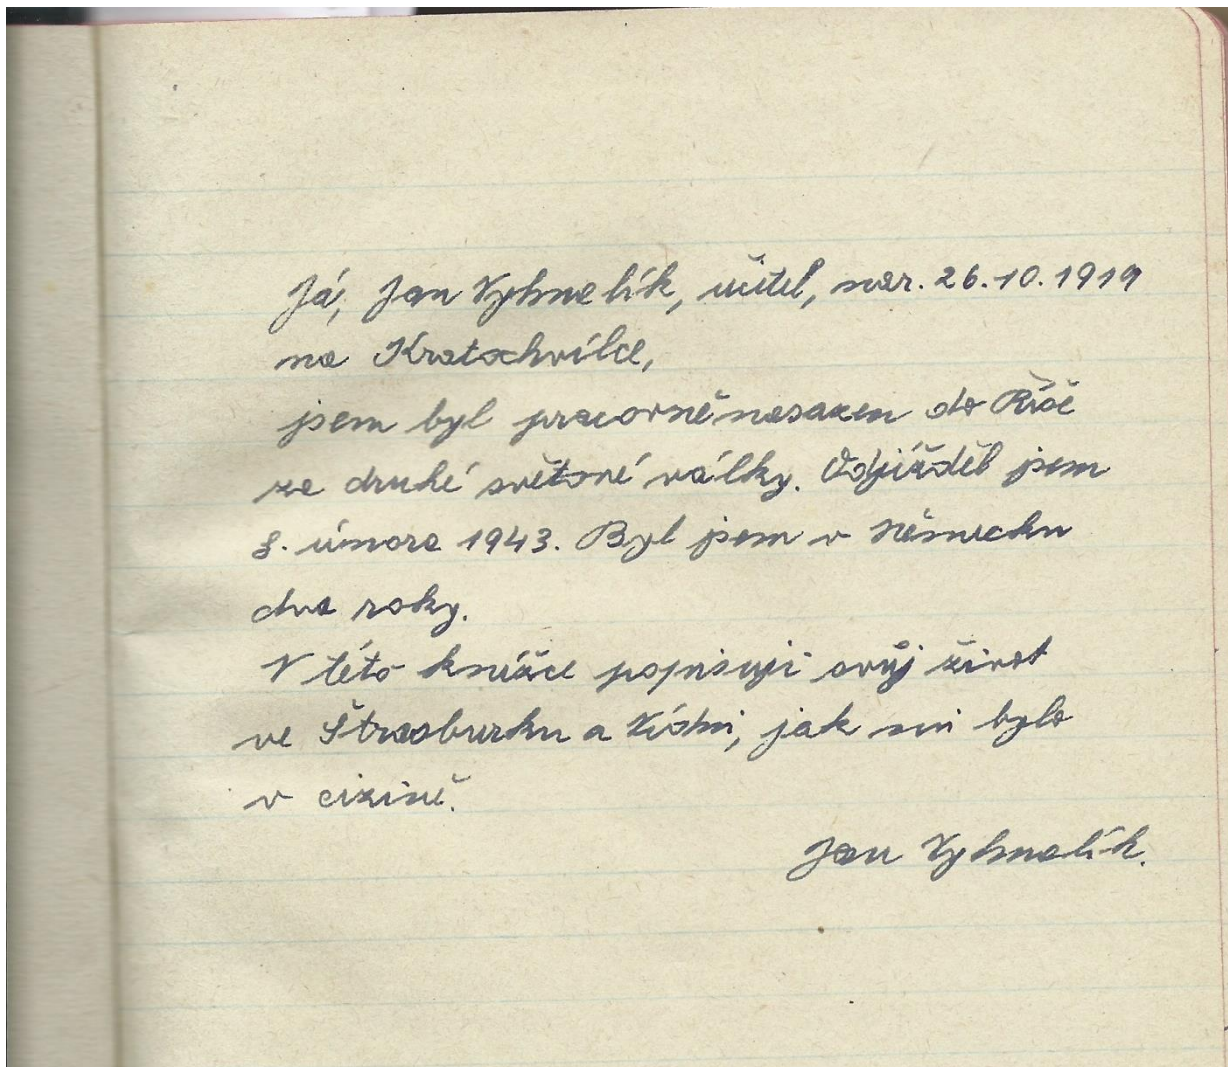 Já, Jan Vyhnalík, učitel, nar. 26.10.1919
na Kratochvílce,
jsem byl pracovně nasazen do Říše
za druhé světové války. Odjížděl jsem
8. února 1943. Byl jsem v Německu
dva roky.
V této knížce popisuji svůj život
ve Štrasburku a Vídni, jak mi bylo
v cizině.
Jan Vyhnalík.